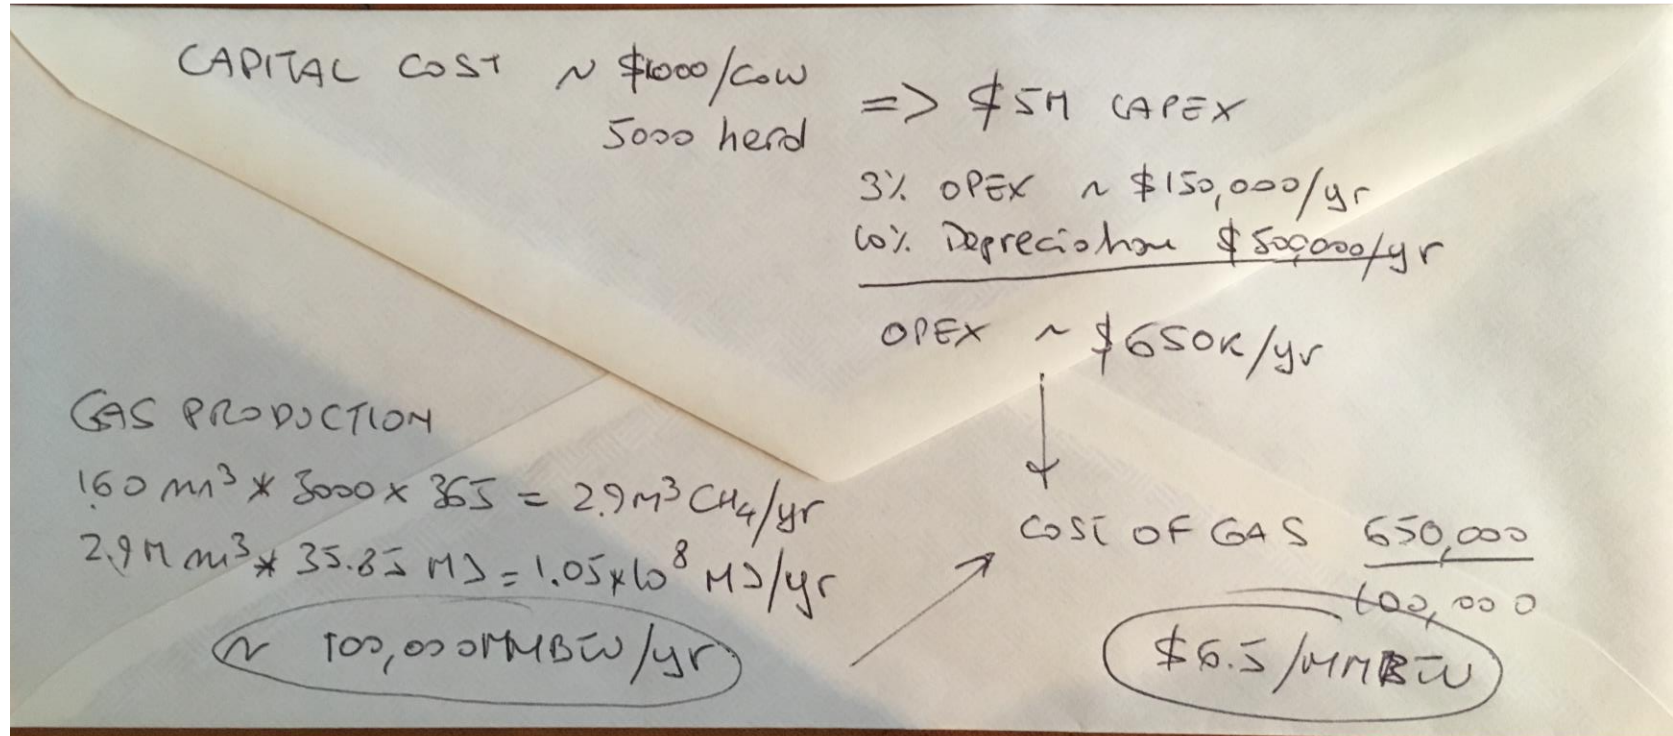 CAPITAL COST ~ $1000/cow
5000 herd
=> $5M CAPEX
3% OPEX ~ $150,000/yr
10% Depreciation $500,000/yr
OPEX ~ $650K/yr
GAS PRODUCTION
1.60 m³ * 5000 x 365 = 2.9M³ CH4/yr
2.9M m³ * 35.85 MJ = 1.05x10⁸ MJ/yr
~ 100,000MMBTU/yr
COST OF GAS 650,000
100,000
$6.5/MMBTU